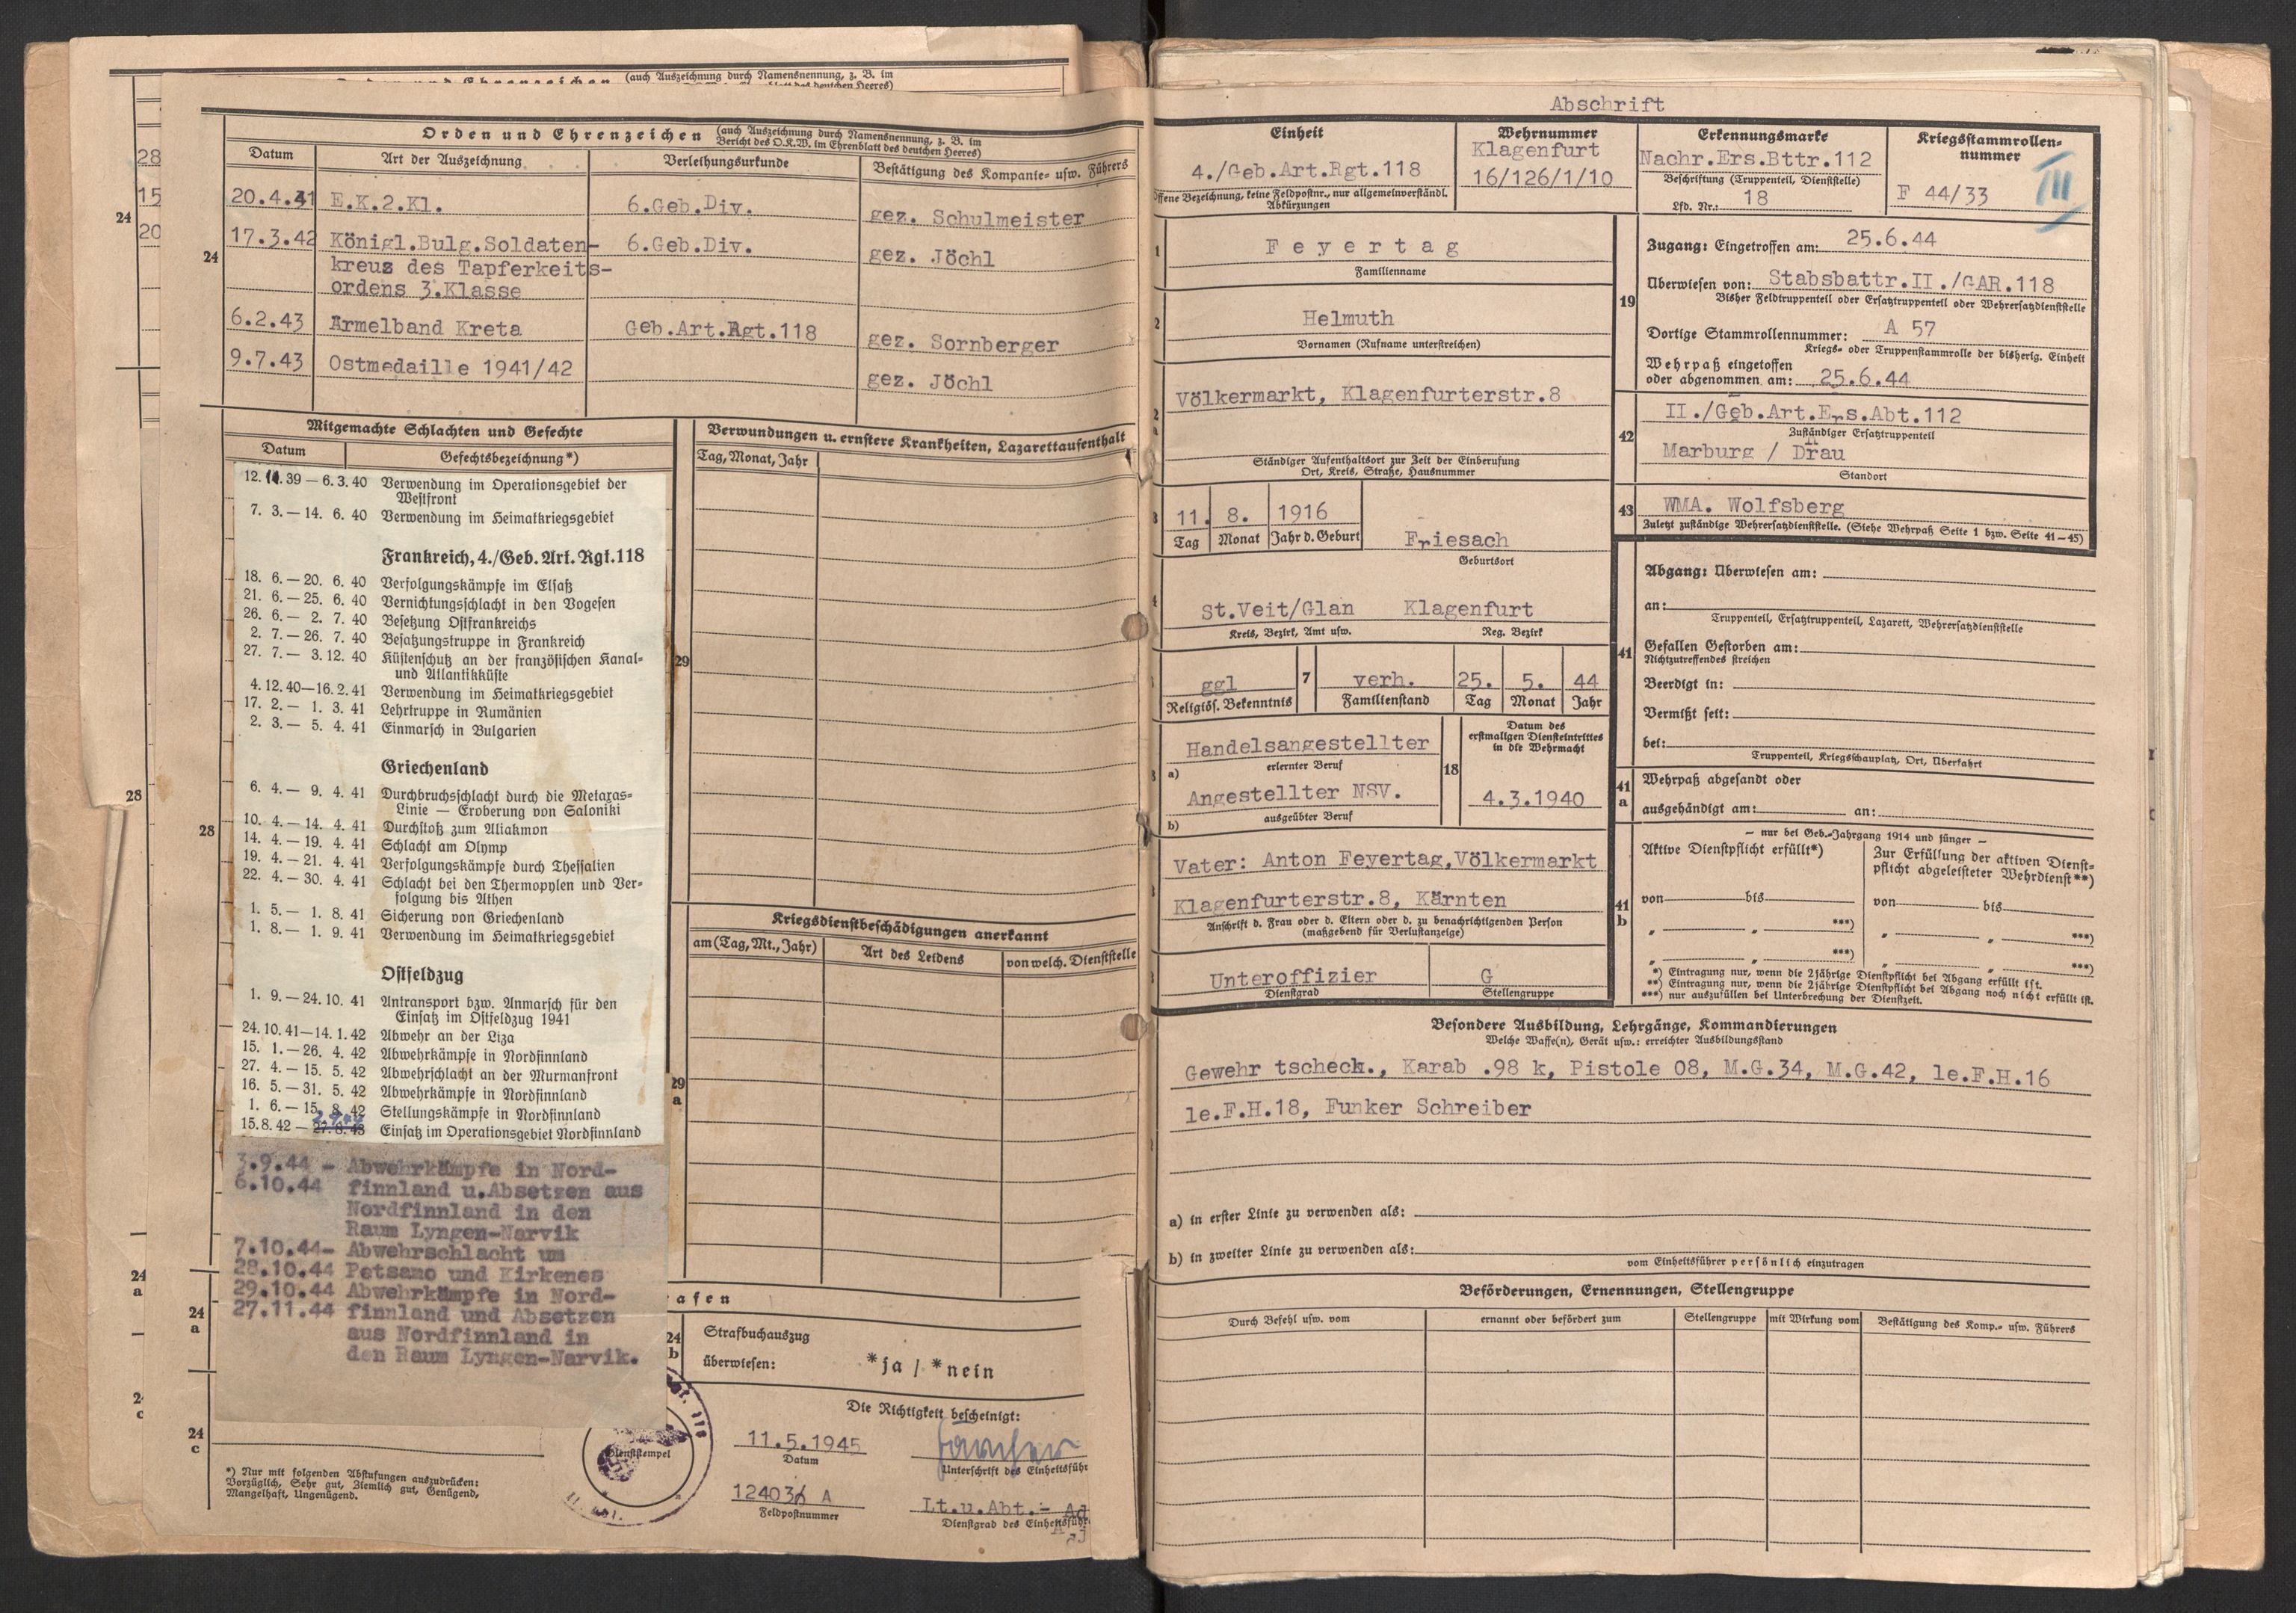 (auch Auszeichnung durch Namensnennung, z. B. im
28
15
24
20
28
24
a
Orden und Ehrenzeichen (auch Auszeichnung durch Namensnennung, z. B. im
Bericht des O.K.W. im Ehrenblatt des deutschen Heeres)
Datum Art der Auszeichnung Verleihungsurkunde Bestätigung des Kompanie- usw. Führers
20.4.41 E.K.2.Kl. 6.Geb.Div. gez. Schulmeister
17.3.42 Königl.Bulg.Soldaten- 6.Geb.Div. gez. Jöchl
24
kreuz des Tapferkeits-
ordens 3.Klasse
6.2.43 Ärmelband Kreta Geb.Art.Rgt.118 gez. Sornberger
9.7.43 Ostmedaille 1941/42 gez. Jöchl
Mitgemachte Schlachten und Gefechte
Datum Gefechtsbezeichnung*)
28
12.11.39 — 6.3.40 Verwendung im Operationsgebiet der
Westfront
7. 3. — 14. 6. 40 Verwendung im Heimatkriegsgebiet
Frankreich, 4./Geb. Art. Rgt.118
18. 6. — 20. 6. 40 Verfolgungskämpfe im Elsaß
21. 6. — 25. 6. 40 Vernichtungsschlacht in den Vogesen
26. 6. — 2. 7. 40 Besetzung Ostfrankreichs
2. 7. — 26. 7. 40 Besatzungstruppe in Frankreich
27. 7. — 3. 12. 40 Küstenschutz an der französischen Kanal-
und Atlantikküste
4. 12. 40—16. 2. 41 Verwendung im Heimatkriegsgebiet
17. 2. — 1. 3. 41 Lehrtruppe in Rumänien
2. 3. — 5. 4. 41 Einmarsch in Bulgarien
Griechenland
6. 4. — 9. 4. 41 Durchbruchsschlacht durch die Metaxas-
Linie — Eroberung von Saloniki
10. 4. — 14. 4. 41 Durchstoß zum Aliakmon
14. 4. — 19. 4. 41 Schlacht am Olymp
19. 4. — 21. 4. 41 Verfolgungskämpfe durch Thessalien
22. 4. — 30. 4. 41 Schlacht bei den Thermopylen und Ver-
folgung bis Athen
1. 5. — 1. 8. 41 Sicherung von Griechenland
1. 8. — 1. 9. 41 Verwendung im Heimatkriegsgebiet
Ostfeldzug
1. 9. — 24. 10. 41 Antransport bzw. Anmarsch für den
Einsatz im Ostfeldzug 1941
24. 10. 41—14. 1. 42 Abwehr an der Liza
15. 1. — 26. 4. 42 Abwehrkämpfe in Nordfinnland
27. 4. — 15. 5. 42 Abwehrschlacht an der Murmanfront
16. 5. — 31. 5. 42 Abwehrkämpfe in Nordfinnland
1. 6. — 15. 8. 42 Stellungskämpfe in Nordfinnland
15. 8. 42 — Einsatz im Operationsgebiet Nordfinnland
3.9.44 - Abwehrkämpfe in Nord-
6.10.44 finnland u.Absetzen aus
Nordfinnland in den
Raum Lyngen-Narvik
7.10.44- Abwehrschlacht um
28.10.44 Petsamo und Kirkenes
29.10.44 Abwehrkämpfe in Nord-
27.11.44 finnland und Absetzen
aus Nordfinnland in
den Raum Lyngen-Narvik.
24
a
24
c
*) Nur mit folgenden Abstufungen auszudrücken:
Vorzüglich, Sehr gut, Ziemlich gut, Genügend,
Mangelhaft, Ungenügend.
Verwundungen u. ernstere Krankheiten, Lazarettaufenthalt
Tag, Monat, Jahr
29
Kriegsdienstbeschädigungen anerkannt
am (Tag, Mt., Jahr) Art des Leidens von welch. Dienststelle
29
a
afen
24
b
Strafbuchauszug
überwiesen: *ja / *nein
Die Richtigkeit bescheinigt:
Dienststempel
11.5.1945
Datum Unterschrift des Einheitsführ
12403 A Lt.u.Abt.- Ad
Feldpostnummer Dienstgrad des Einheitsführ
Abschrift
Einheit Wehrnummer Erkennungsmarke Kriegsstammrollen-
nummer
4./Geb.Art.Rgt.118 Klagenfurt Nachr.Ers.Bttr.112 III
16/126/1/10 Beschriftung (Truppenteil, Dienststelle)
Offene Bezeichnung, keine Feldpostnr., nur allgemeinverständl.
Abkürzungen
Lfd. Nr.: 18 F 44/33
1 Feyertag
Familienname
2 Helmuth
Vornamen (Rufname unterstreichen)
2
a
Völkermarkt, Klagenfurterstr.8
Ständiger Aufenthaltsort zur Zeit der Einberufung
Ort, Kreis, Straße, Hausnummer
3 11. 8. 1916 Friesach
Tag Monat Jahr d. Geburt Geburtsort
4 St.Veit/Glan Klagenfurt
Kreis, Bezirk, Amt usw. Reg. Bezirk
ggl 7 verh. 25. 5. 44
Religiös. Bekenntnis Familienstand Tag Monat Jahr
Handelsangestellter
a) erlernter Beruf
Angestellter NSV.
b) ausgeübter Beruf
18 Datum des
erstmaligen Diensteintrittes
in die Wehrmacht
4.3.1940
Vater: Anton Feyertag,Völkermarkt
Klagenfurterstr.8, Kärnten
Anschrift d. Frau oder d. Eltern oder d. zu benachrichtigenden Person
(maßgebend für Verlustanzeige)
Unteroffizier G
Dienstgrad Stellengruppe
19
Zugang: Eingetroffen am: 25.6.44
Überwiesen von: Stabsbattr.II./GAR.118
Bisher Feldtruppenteil oder Ersatztruppenteil oder Wehrersatzdienststelle
Dortige Stammrollennummer: A 57
Kriegs- oder Truppenstammrolle der bisherig. Einheit
Wehrpaß eingetoffen
oder abgenommen am: 25.6.44
42 II./Geb.Art.Ers.Abt.112
Zuständiger Ersatztruppenteil
Marburg / Drau
Standort
43 WMA. Wolfsberg
Zuletzt zuständige Wehrersatzdienststelle. (Siehe Wehrpaß Seite 1 bzw. Seite 41—45)
Abgang: Überwiesen am:
an:
Truppenteil, Ersatztruppenteil, Lazarett, Wehrersatzdienststelle
41
Gefallen Gestorben am:
Nichtzutreffendes streichen
Beerdigt in:
Vermißt seit:
bei:
Truppenteil, Kriegsschauplatz, Ort, Überfahrt
41
a
Wehrpaß abgesandt oder
ausgehändigt am: an:
— nur bei Geb.-Jahrgang 1914 und jünger —
41
b
Aktive Dienstpflicht erfüllt*) Zur Erfüllung der aktiven Dienst-
pflicht abgeleisteter Wehrdienst**)
von bis von bis
" " ***) " " ***)
" " ***) " " ***)
*) Eintragung nur, wenn die 2jährige Dienstpflicht bei Abgang erfüllt ist.
**) Eintragung nur, wenn die 2jährige Dienstpflicht bei Abgang noch nicht erfüllt ist.
***) nur auszufüllen bei Unterbrechung der Dienstzeit.
Besondere Ausbildung, Lehrgänge, Kommandierungen
Welche Waffe(n), Gerät usw.: erreichter Ausbildungsstand
Gewehr tscheck., Karab .98 k, Pistole 08, M.G.34, M.G.42, le.F.H.16
le.F.H.18, Funker Schreiber
a) in erster Linie zu verwenden als:
b) in zweiter Linie zu verwenden als:
vom Einheitsführer persönlich einzutragen
Beförderungen, Ernennungen, Stellengruppe
Durch Befehl usw. vom ernannt oder befördert zum Stellengruppe mit Wirkung vom Bestätigung des Komp.- usw. Führers